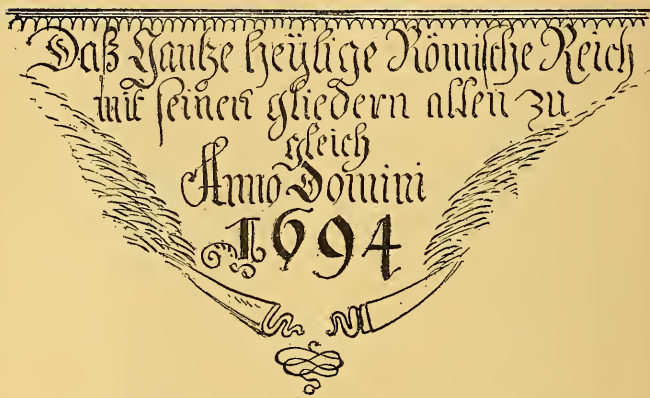 Daß Gantze heÿlige Römische Reich
mit seinen gliedern allen zu
gleich
Anno Domini
1694